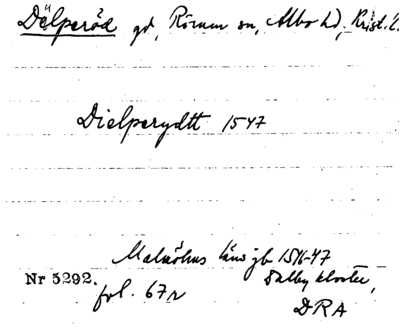 Dälperöd gd, Rörum sn, Albo hd, Krist. l.
Dielperydtt 1547
Malmöhus läns jb 1546-47
Dalby kloster,
Nr 5292. fol. 67r
DRA